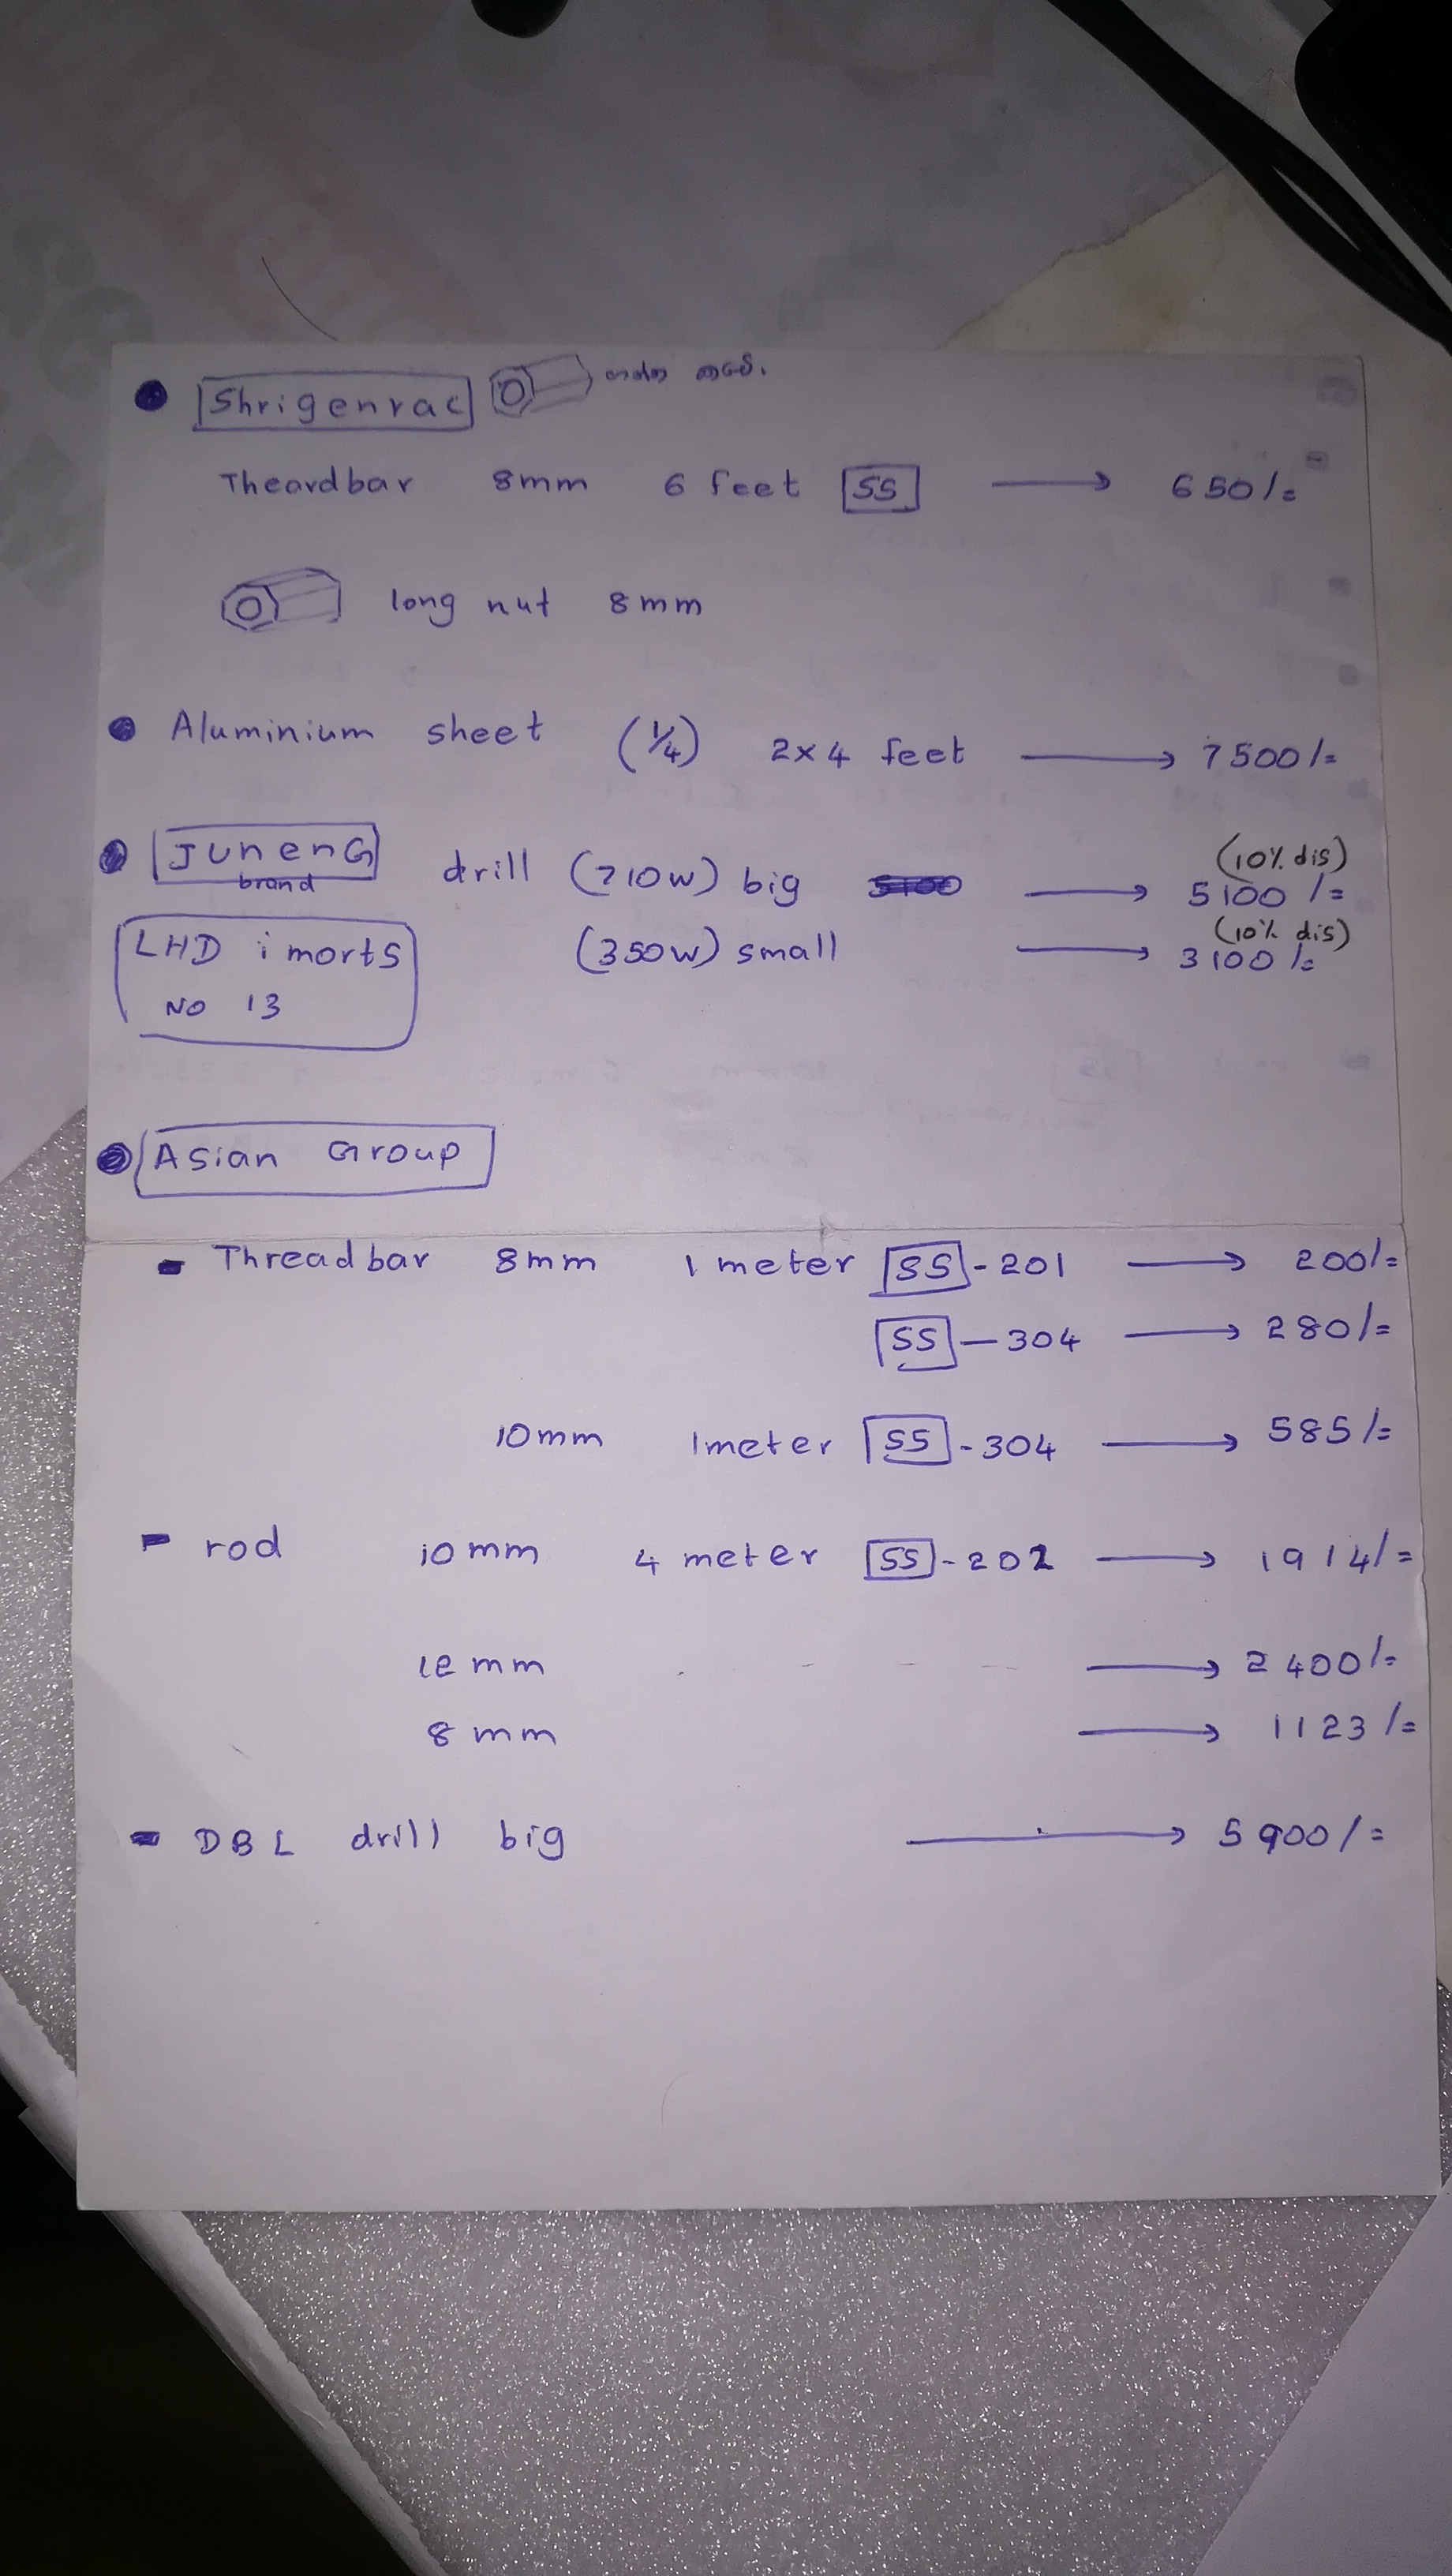 Shrigenrac
Theardbar 8mm 6 feet SS → 650/=
long nut 8mm
Aluminium sheet (1/4) 2x4 feet → 7500/=
JunenG brand drill (710W) big → (10% dis) 5100/=
LHD imorts (350W) small → (10% dis) 3100/=
NO 13
Asian Group
- Threadbar 8mm 1 meter SS-201 → 200/=
SS-304 → 280/=
10mm 1meter SS-304 → 585/=
- rod 10mm 4 meter SS-202 → 1914/=
12mm → 2400/=
8mm → 1123/=
- DBL drill big → 5900/=